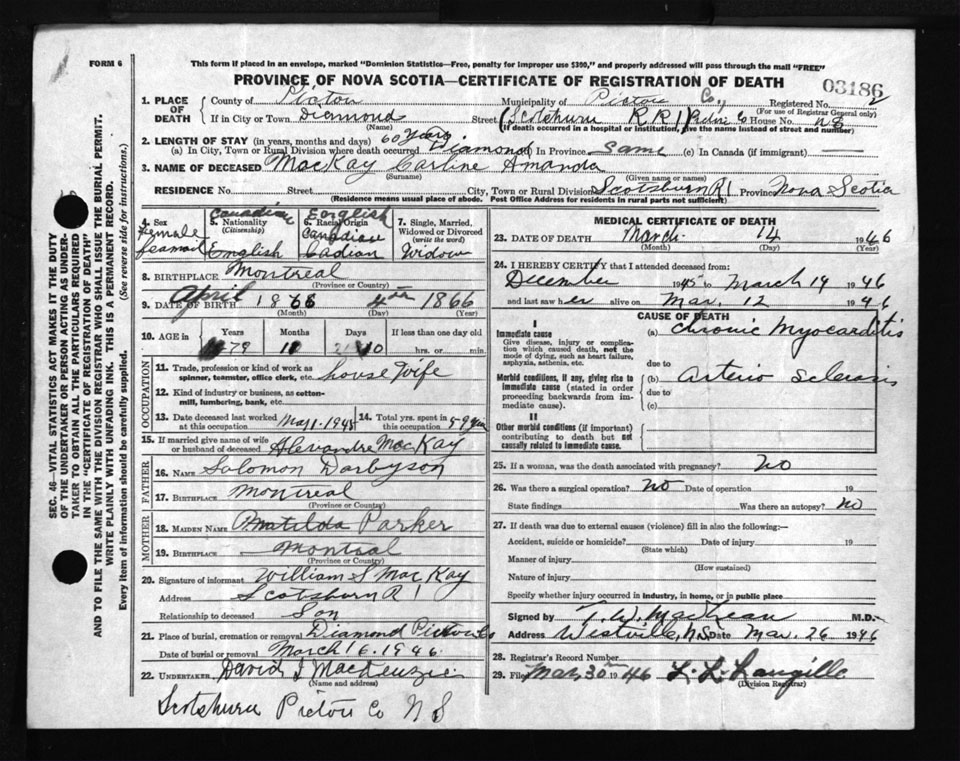 FORM 6
This form if placed in an envelope, marked "Dominion Statistics—Free, penalty for improper use $300," and properly addressed will pass through the mail "FREE"
PROVINCE OF NOVA SCOTIA—CERTIFICATE OF REGISTRATION OF DEATH
03186
1. PLACE OF DEATH
County of Pictou Municipality of Pictou Co., Registered No. 2
(For use of Registrar General only)
If in City or Town Diamond Street (Scotsburn R R 1 Pictou Co House No. N S
(Name) (If death occurred in a hospital or institution, give the name instead of street and number)
2. LENGTH OF STAY (in years, months and days) 60 years
(a) In City, Town or Rural Division where death occurred Diamond (b) In Province same (c) In Canada (if immigrant)
3. NAME OF DECEASED MacKay Carline Amanda
(Surname) (Given name or names)
RESIDENCE No. Street City, Town or Rural Division Scotsburn R 1 Province Nova Scotia
(Residence means usual place of abode. Post Office Address for residents in rural parts not sufficient)
4. Sex Female
5. Nationality (Citizenship) Canadian English
6. Racial Origin English Canadian
7. Single, Married, Widowed or Divorced (write the word) Widow
8. BIRTHPLACE Montreal
(Province or Country)
9. DATE OF BIRTH April 1866 4th 1866
(Month) (Day) (Year)
10. AGE in Years Months Days If less than one day old
79 11 10 hrs. or min.
OCCUPATION
11. Trade, profession or kind of work as spinner, teamster, office clerk, etc. house wife
12. Kind of industry or business, as cotton-mill, lumbering, bank, etc.
13. Date deceased last worked at this occupation May 1. 1945 14. Total yrs. spent in this occupation 59 yrs
15. If married give name of wife or husband of deceased Alexandre MacKay
FATHER
16. NAME Solomon Darbyson
17. BIRTHPLACE Montreal
(Province or Country)
MOTHER
18. MAIDEN NAME Matilda Parker
19. BIRTHPLACE Montreal
(Province or Country)
20. Signature of informant William S MacKay
Address Scotsburn R 1
Relationship to deceased Son
21. Place of burial, cremation or removal Diamond Pictou Co
Date of burial or removal March 16. 1946.
22. UNDERTAKER David J MacKenzie
(Name and address)
Scotsburn Pictou Co N S
MEDICAL CERTIFICATE OF DEATH
23. DATE OF DEATH March 14 1946
(Month) (Day) (Year)
24. I HEREBY CERTIFY that I attended deceased from:
December 1945 to March 14 1946
and last saw her alive on Mar. 12 1946
CAUSE OF DEATH
I
Immediate cause
Give disease, injury or complication which caused death, not the mode of dying, such as heart failure, asphyxia, asthenia, etc.
(a) Chronic Myocarditis
due to
Morbid conditions, if any, giving rise to immediate cause (stated in order proceeding backwards from immediate cause).
(b) Arterio sclerosis
due to
(c)
II
Other morbid conditions (if important) contributing to death but not causally related to immediate cause.
25. If a woman, was the death associated with pregnancy? No
26. Was there a surgical operation? No Date of operation 19
State findings Was there an autopsy? No
27. If death was due to external causes (violence) fill in also the following:—
Accident, suicide or homicide? Date of injury 19
(State which)
Manner of injury
(How sustained)
Nature of injury
Specify whether injury occurred in industry, in home, or in public place
Signed by T. W. MacLean M.D.
Address Westville, N.S. Date Mar. 26 1946
28. Registrar's Record Number
29. Filed Mar 30 1946 L. L. Langille
(Division Registrar)
SEC. 46—VITAL STATISTICS ACT MAKES IT THE DUTY
OF THE UNDERTAKER OR PERSON ACTING AS UNDER-
TAKER TO OBTAIN ALL THE PARTICULARS REQUIRED
IN THE "CERTIFICATE OF REGISTRATION OF DEATH"
AND TO FILE THE SAME WITH THE DIVISION REGISTRAR WHO SHALL ISSUE THE BURIAL PERMIT.
WRITE PLAINLY WITH UNFADING INK. THIS IS A PERMANENT RECORD.
Every item of information should be carefully supplied. (See reverse side for instructions.)